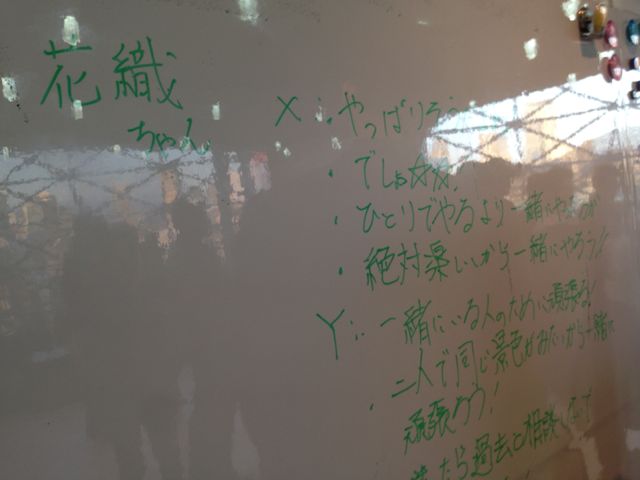 花織
ちゃん。
X:・やっぱりそう
・でしょ☆☆!
・ひとりでやるより一緒にやるが
・絶対楽しいから一緒にやろう!
Y:・一緒にいる人のために頑張る!
・二人で同じ景色がみたいから一緒に
頑張ろう!
たら過去と相談